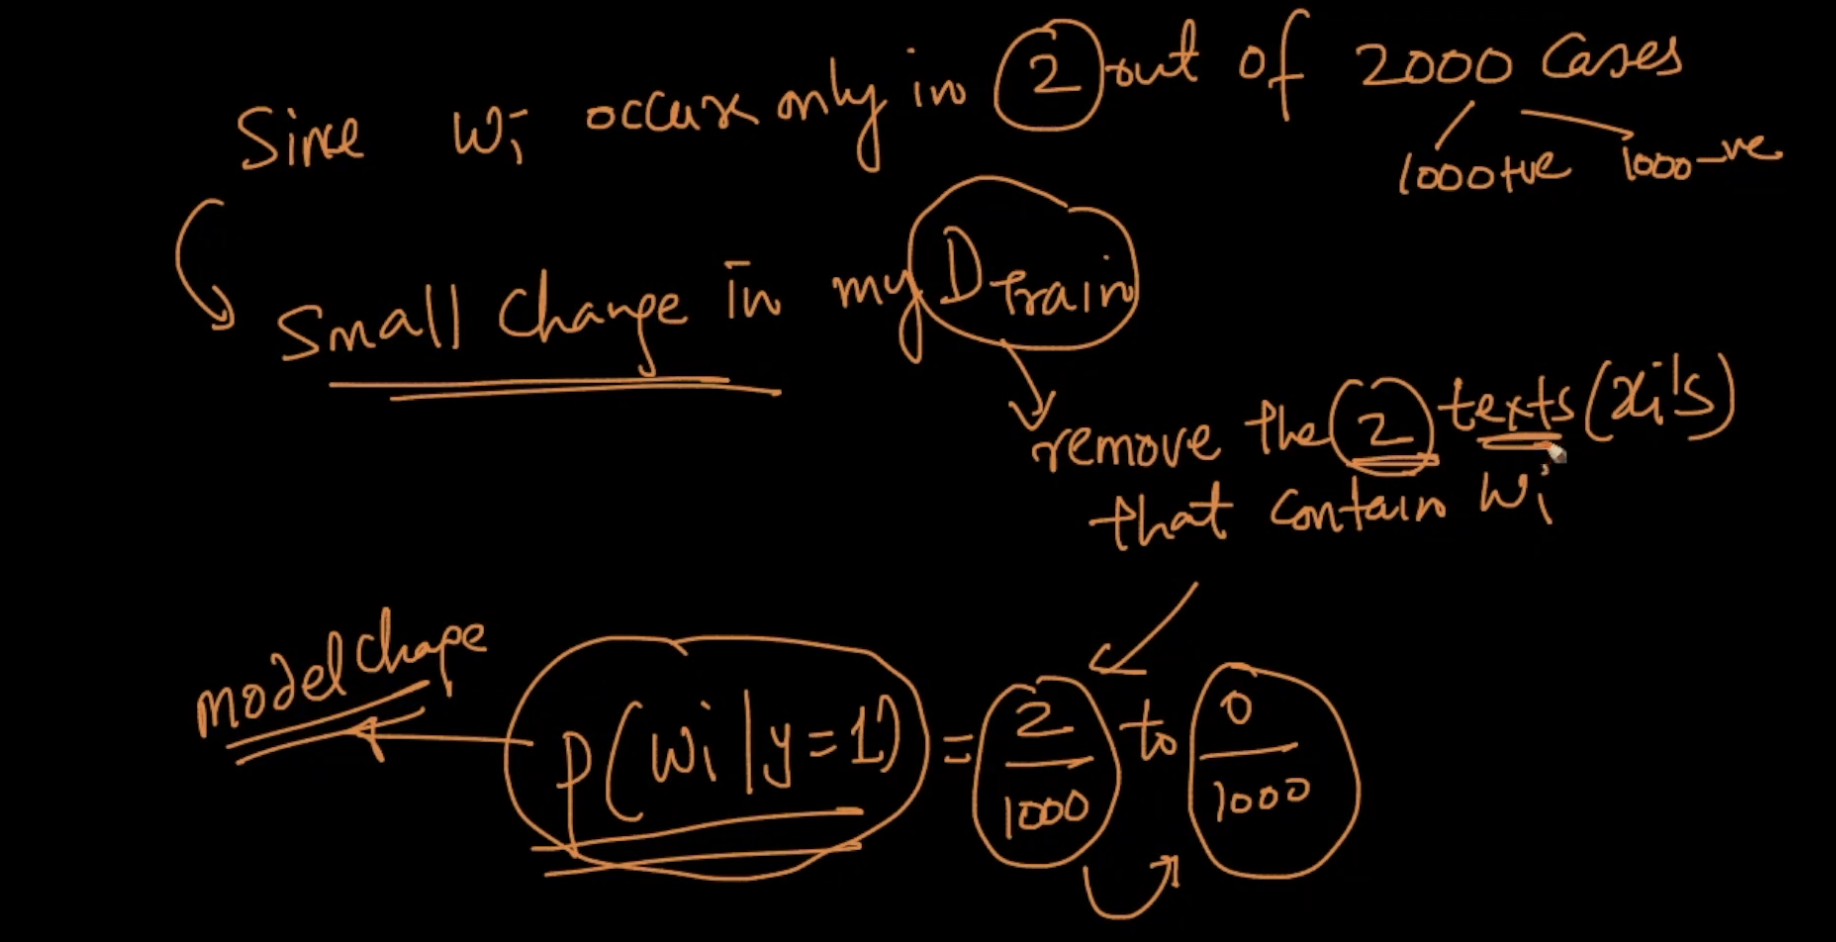 Since Wi occurs only in 2 out of 2000 Cases
1000+ve 1000-ve
Small Change in my Dtrain
remove the 2 texts (xi's)
that contain Wi
model change
P(Wi|y=1) = 2/1000 to 0/1000